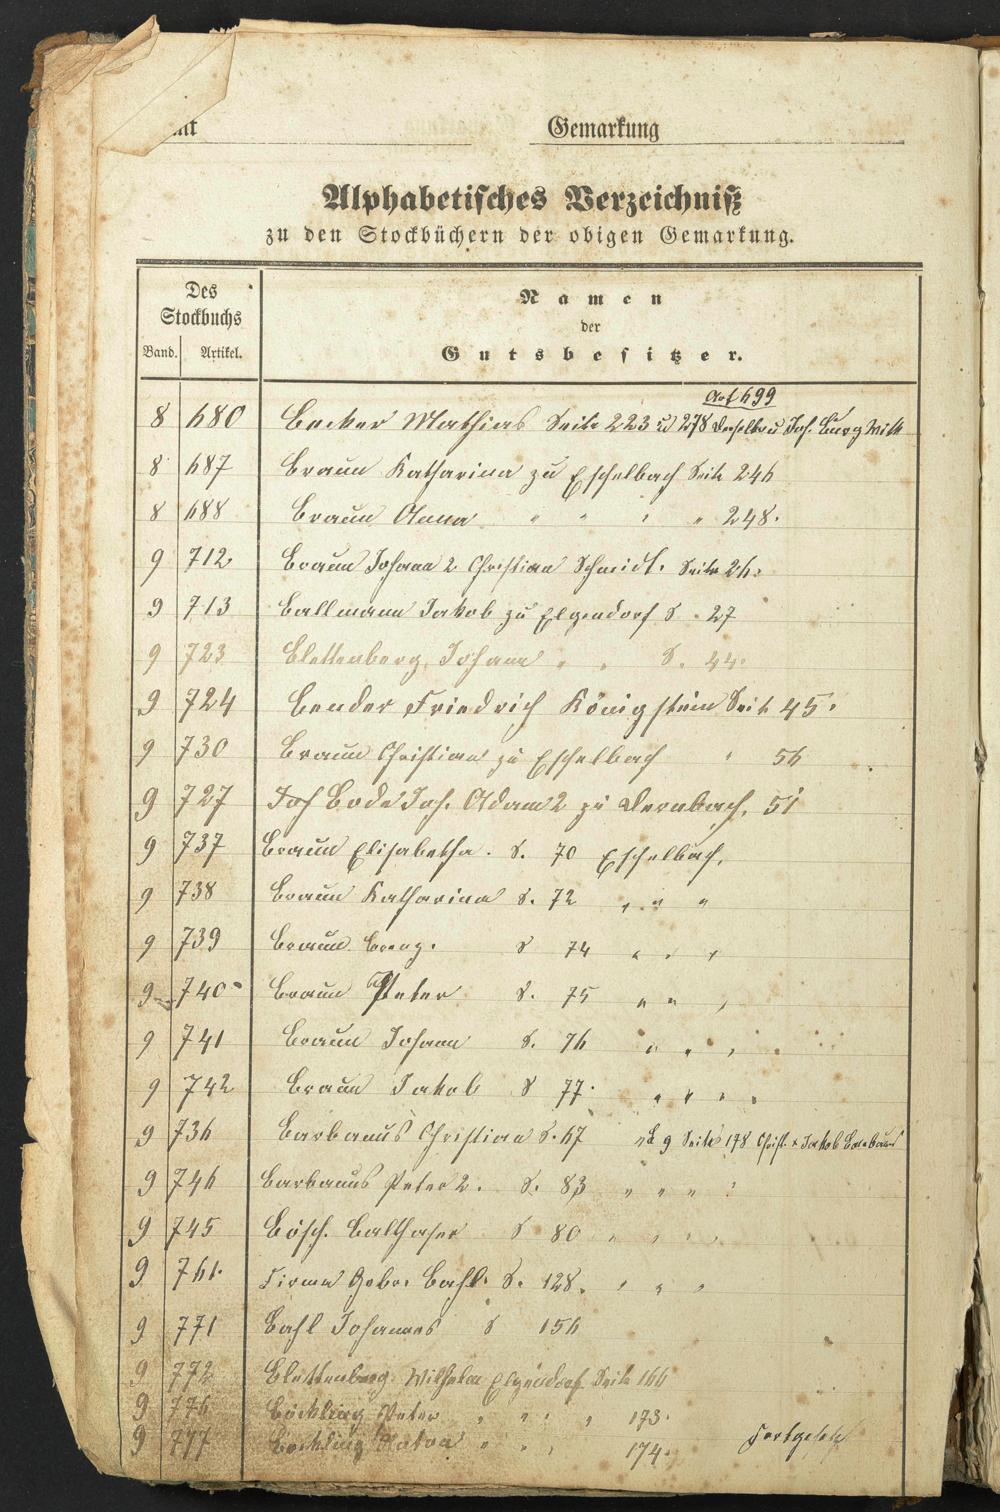 Gemarkung
Alphabetisches Verzeichniß
zu den Stockbüchern der obigen Gemarkung.
Des Stockbuchs
Band. Artikel.
Namen
der
Gutsbesitzer.
Art 699
8 680 Becker Mathias Seite 223 u 278 Derselbe u Joh. Burg Witt
8 687 Braun Katharina zu Eschelbach Seite 246
8 688 Braun Anna " " " " 248.
9 712 Braun Johann 2 Christian Schmidt. Seite 26.
9 713 Ballmann Jakob zu Elgendorf S. 27
9 723 Blettenberg, Johann " " S. 44.
9 724 Bender Friedrich Königstein Seite 45.
9 730 Braun Christian zu Eschelbach " 56
9 727 Joh Bode Joh. Adam 2 zu Dernbach, 51
9 737 Braun Elisabetha. S. 70 Eschelbach,
9 738 Braun Katharina S. 72 " " "
9 739 Braun S 74 " " "
9 740 Braun Peter S. 75 " " "
9 741 Braun Johann S. 76 " " "
9 742 Braun Jakob S 77. " " " "
9 736 Barbanus Christian S. 67 9 Seite 178 Christ. & Jakob Barbanus
9 746 Barbanus Peter 2. S. 83 " " " "
9 745 Bösch. Balthaser S 80 " " " "
9 761. Firma Gebr. Bahl. S. 128. " " "
9 771 Bahl Johannes S 156
9 772 Blettenberg Wilhelm Elgendorf Seite 166
9 776 Böckling Peter " " " " 173.
9 777 Böckling Anton " " " 174.
Fortgesetzt